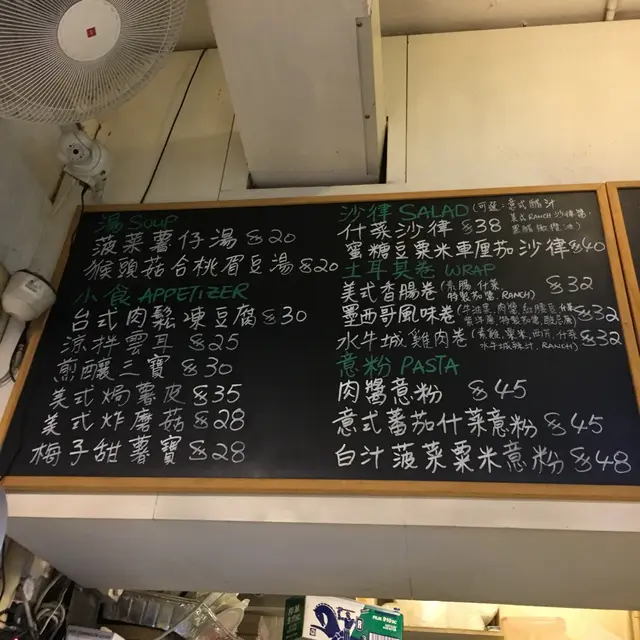 湯 SOUP
菠菜薯仔湯 $20
猴頭菇合桃眉豆湯 $20
小食 APPETIZER
台式肉鬆凍豆腐 $30
涼拌雲耳 $25
煎釀三寶 $30
美式焗薯皮 $35
美式炸蘑菇 $28
梅子甜薯寶 $28
沙律 SALAD (可選:意式醋汁
美式RANCH沙律醬,
黑醋橄欖油)
什菜沙律 $38
蜜糖豆粟米車厘茄沙律 $40
土耳其卷 WRAP
美式香腸卷 (素腸,什菜 $32
特製茄醬,RANCH)
墨西哥風味卷 $32
水牛城雞肉卷 (素雞,粟米,西芹,什菜 $32
水牛城辣汁,RANCH)
意粉 PASTA
肉醬意粉 $45
意式蕃茄什菜意粉 $45
白汁菠菜粟米意粉 $48